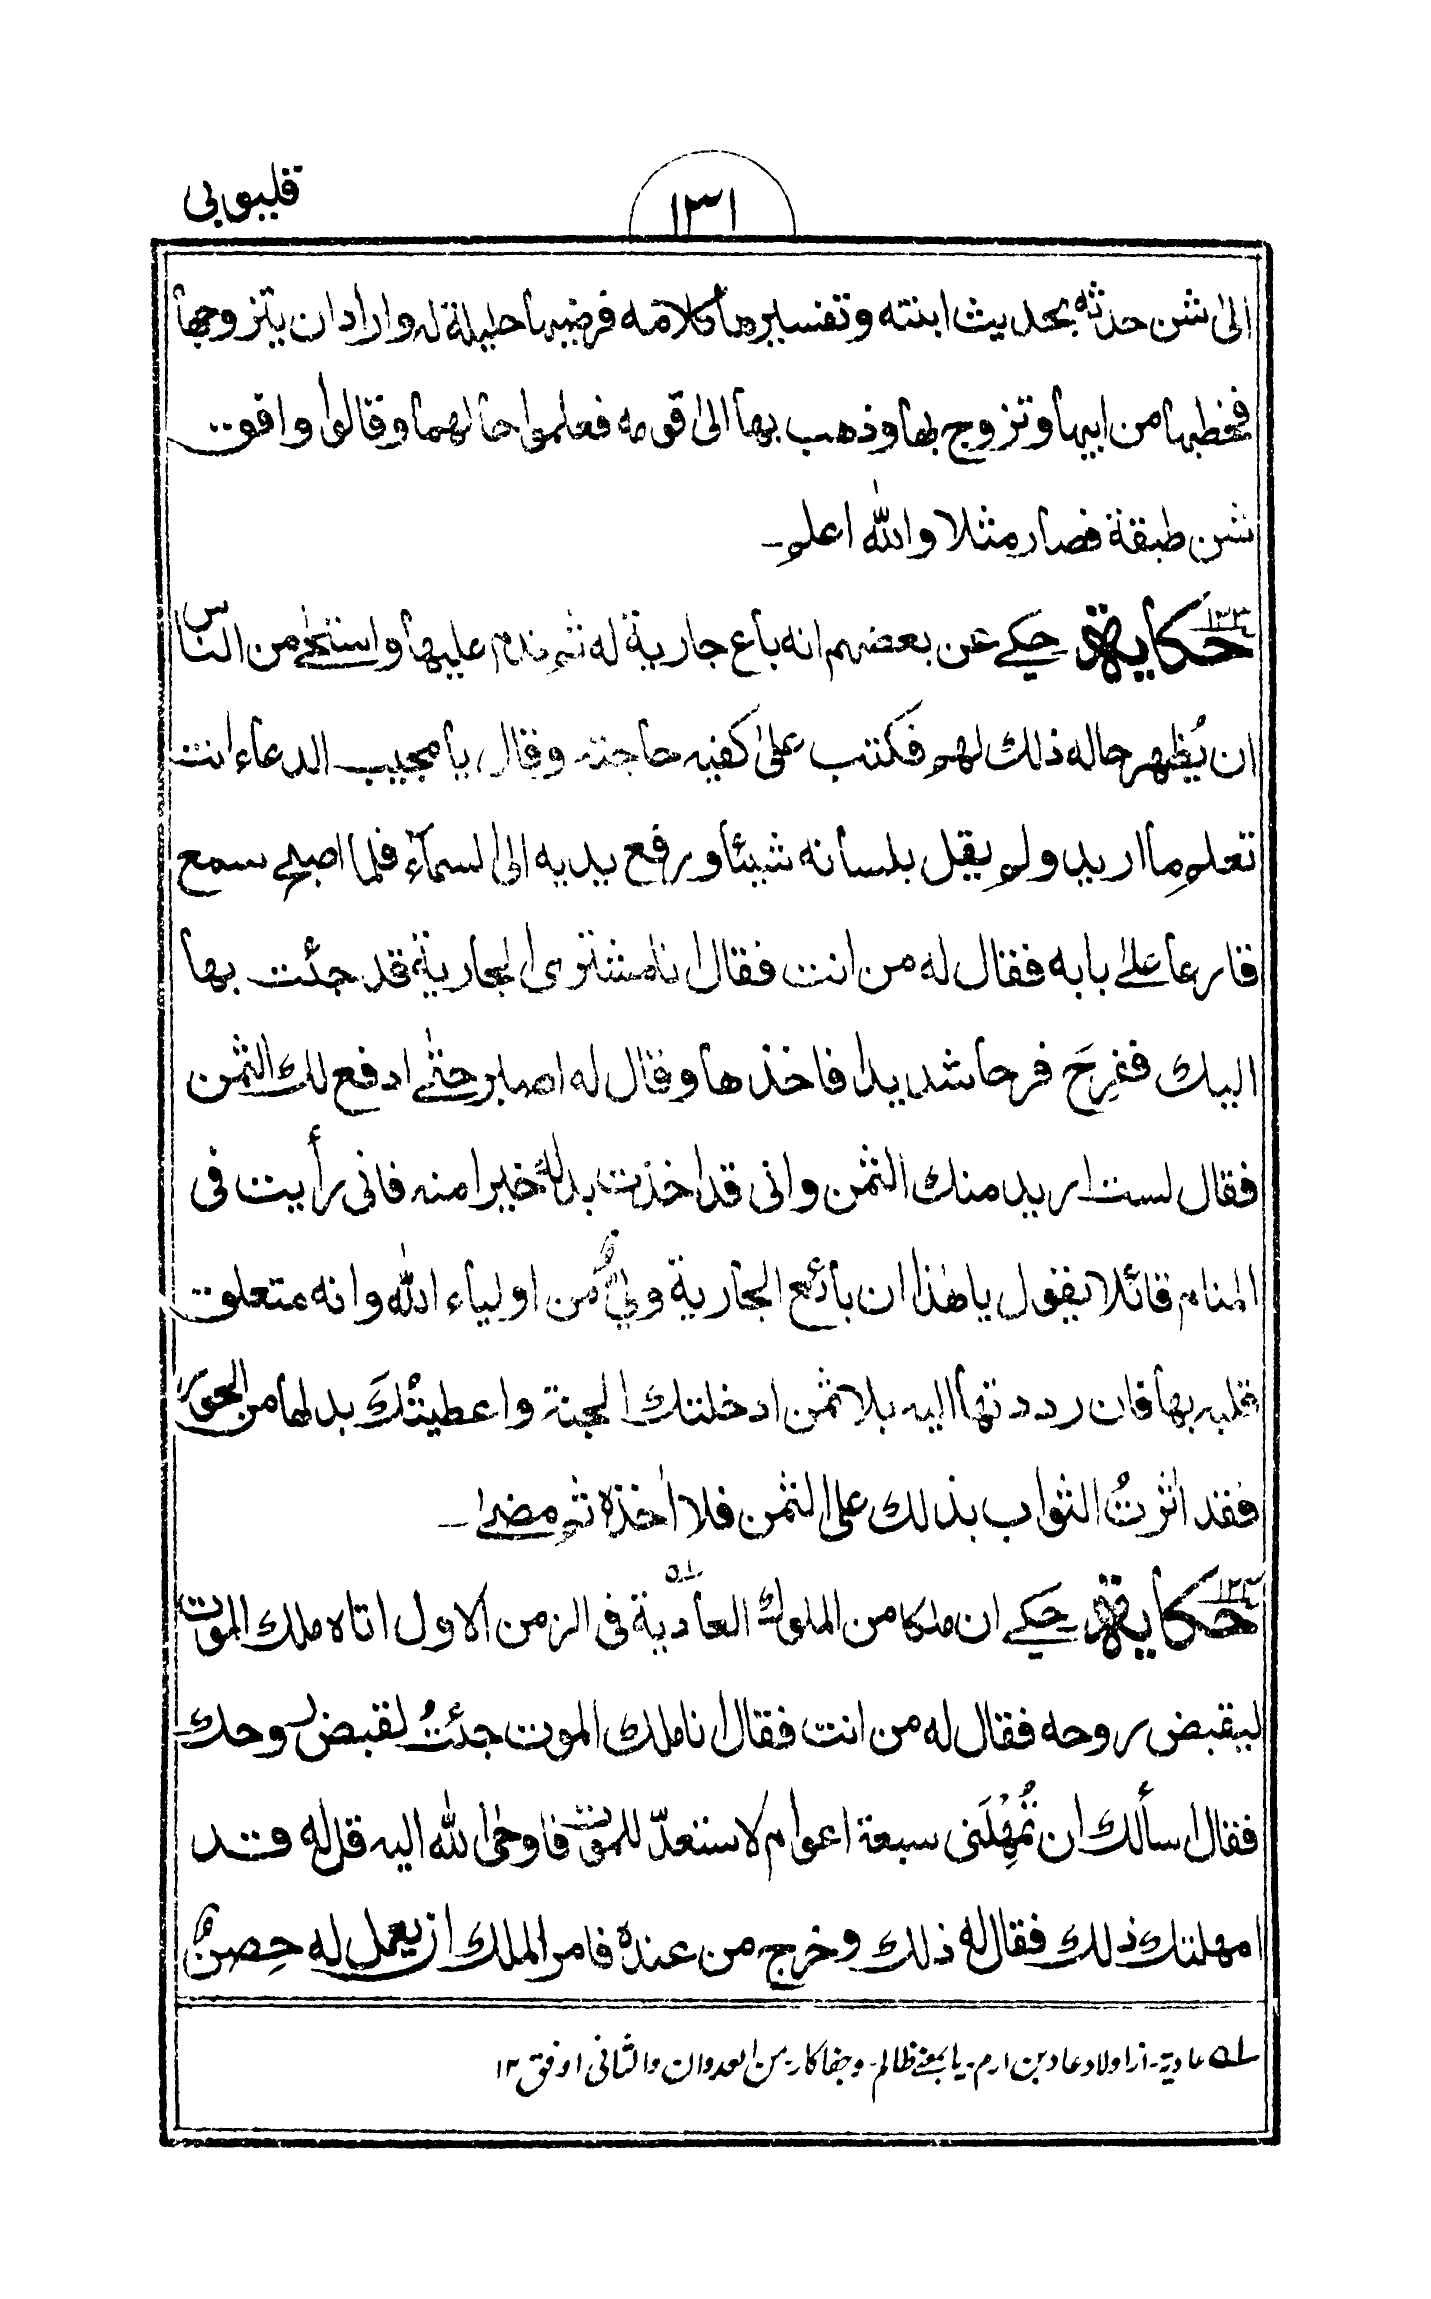 قليوبي
١٣١
الىٰ شن حدثه بحديث ابنته وتفسيرها كلامه فرضيها حليلة له واراد ان يتزوجها
فخطبها من ابيها وتزوج بها وذهب بها الىٰ قومه فعلموا حالهما وقالوا وافق
شن طبقة فصار مثلا والله اعلم۔
حكاية ١٣٣ حكي عن بعضهم انه باع جارية له ثم ندم عليها واستحيٰ من الناس
ان يُظهر حاله ذلك لهم فكتب علىٰ كفيه حاجته وقال يا مجيب الدعاء انت
تعلم ما اريد ولم يقل بلسانه شيئا ورفع يديه الى السمآء فلما اصبح سمع
قارعا علىٰ بابه فقال له من انت فقال انا مشترى الجارية قد جئت بها
اليك ففرِحَ فرحا شديدا فاخذها وقال له اصبر حتىٰ ادفع لك الثمن
فقال لست اريد منك الثمن وانى قد اخذت بدله خيرا منه فانى رأيت فى
المنام قائلا يقول يا هٰذا ان بائع الجارية وليٌّ من اولياء الله وانه متعلق
قلبه بها فان رددتها اليه بلا ثمن ادخلتك الجنة واعطيتُكَ بدلها من الحور
فقد اٰثرتُ الثواب بذلك على الثمن فلا اٰخذه ثم مضىٰ۔
حكاية ١٣٤ حكي ان ملكا من الملوك العادية ؎۱ فى الزمن الاول اتاه ملك الموت
ليقبض روحه فقال له من انت فقال انا ملك الموت جئتُ لقبض روحك
فقال اسألك ان تُمْهِلَنى سبعة اعوام لاستعدّ للموت فاوحى الله اليه قل له قد
امهلتك ذلك فقال له ذلك وخرج من عنده فامر الملك ان يعمل له حِصنٌ
؎۱ عادية۔ از اولاد عاد بن ارم۔ يا بمعنے ظالم۔ وجفاكار۔ من العدوان والثانى اوفق ١٢